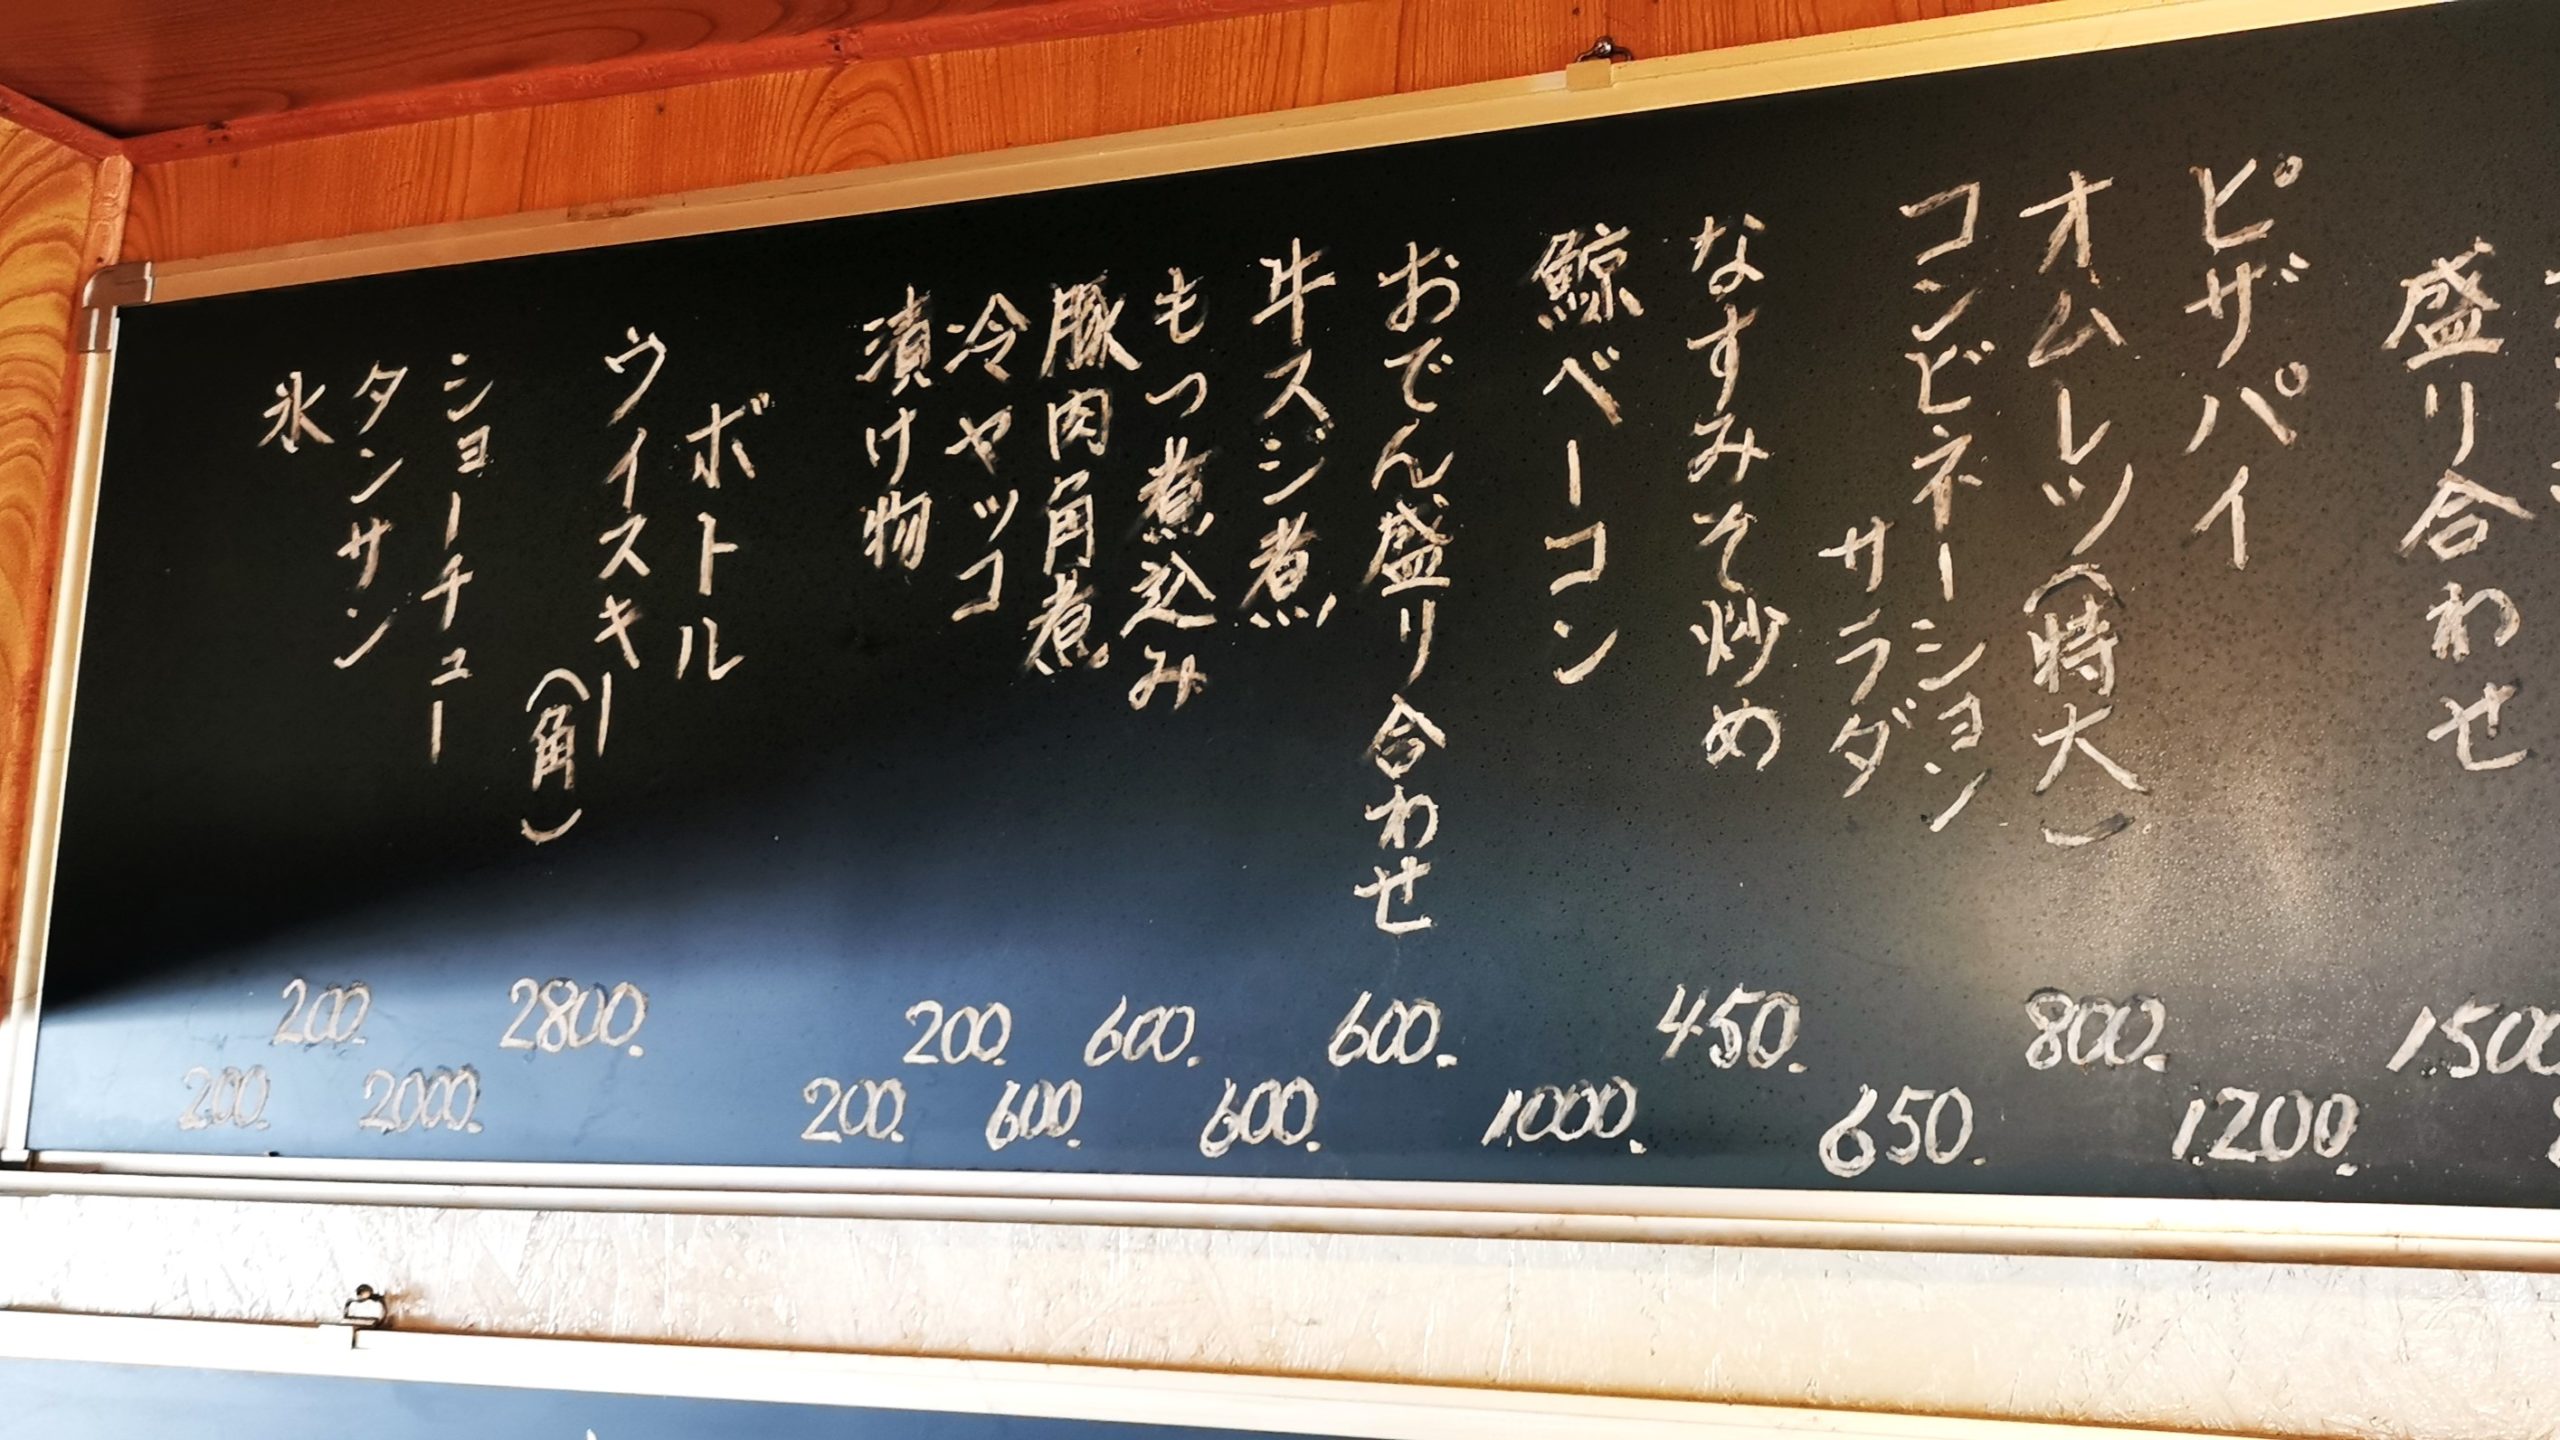 盛り合わせ
1500
ピザパイ
1.200.
オムレツ(特大)
800.
コンビネーション
サラダ
650.
なすみそ炒め
450.
鯨ベーコン
1.000.
おでん盛り合わせ
600.
牛スジ煮
600.
もつ煮込み
600.
豚肉角煮
600.
冷ヤッコ
200.
漬け物
200.
ボトル
ウイスキー
(角)
2800.
ショーチュー
2000.
タンサン
200.
氷
200.